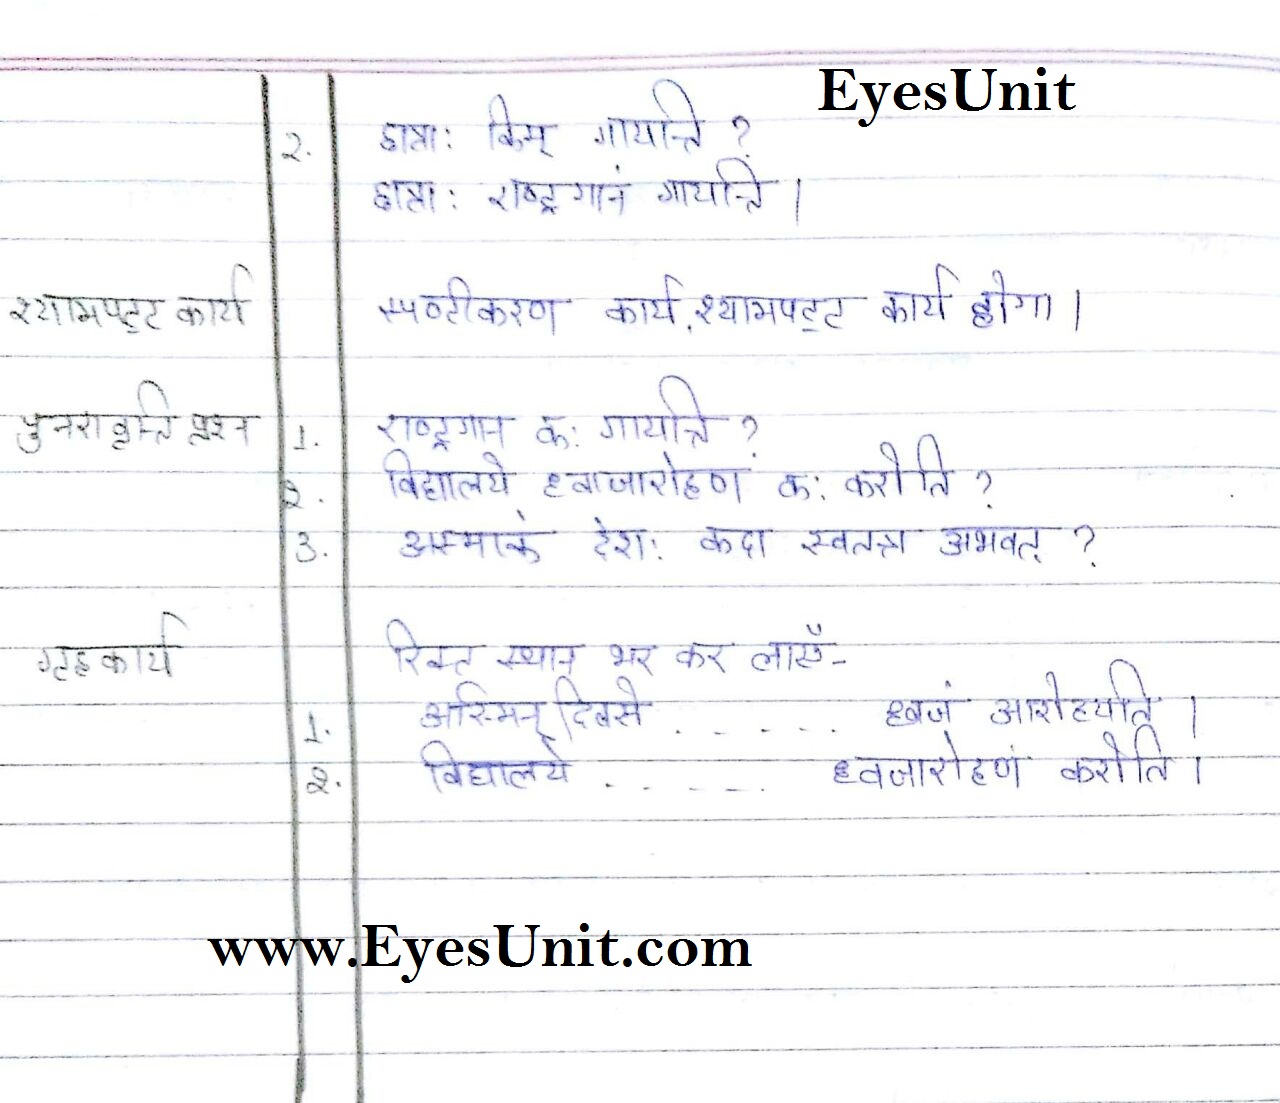 EyesUnit
२. छात्रा: किम् गायन्ति ?
छात्रा: राष्ट्रगानं गायन्ति ।
श्यामपट्ट कार्य स्पष्टीकरण कार्य, श्यामपट्ट कार्य होगा ।
पुनरावृत्ति प्रश्न 1. राष्ट्रगान क: गायन्ति ?
२. विद्यालये ध्वाजारोहणं क: करोति ?
3. अस्माकं देश: कदा स्वतन्त्र अभवत् ?
गृहकार्य रिक्त स्थान भर कर लाएँ-
1. अस्मिन् दिवसे . . . . . . ध्वजं आरोहयति ।
२. विद्यालये . . . . . . ध्वजारोहणं करोति ।
www.EyesUnit.com